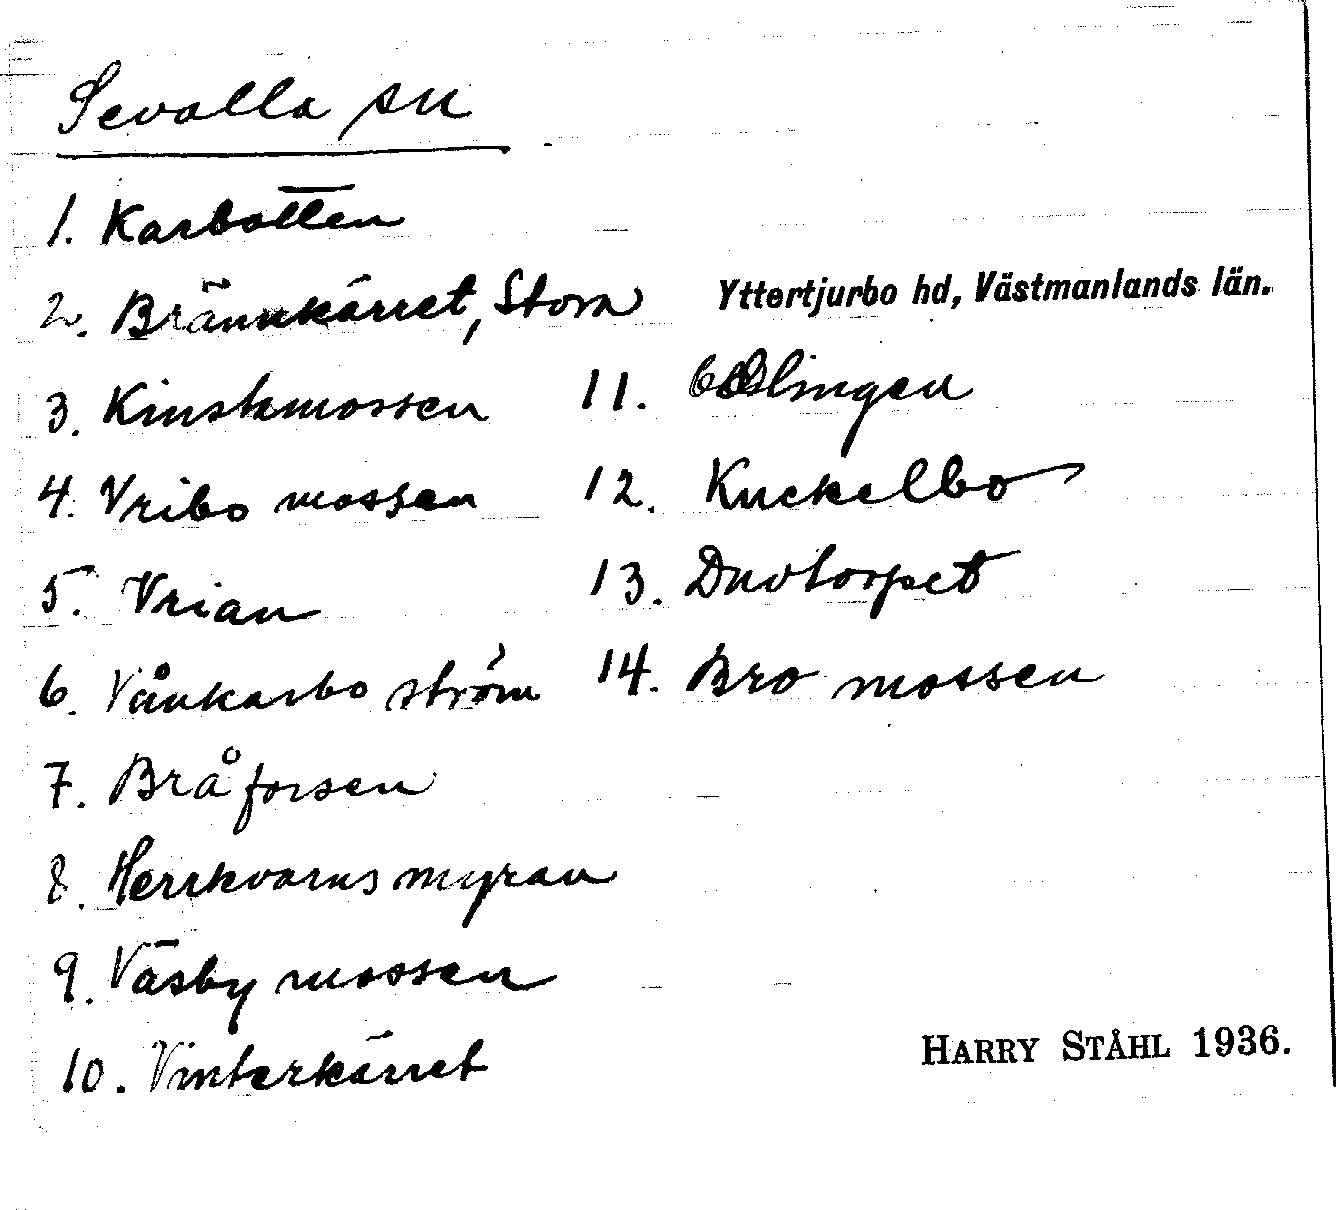 Sevalla sn
1. Karbotten
2. Brännkärret, Stora
Yttertjurbo hd, Västmanlands län.
3. Kinskmossen
4. Vribo mossen
5. Vrian
6. Vånkarbo ström
7. Bråforsen
8. Herrkvarns myran
9. Väsby mossen
10. Vinterkärret
11.
12. Knekelbo
13. Duvtorpet
14. Bro mossen
HARRY STÅHL 1936.